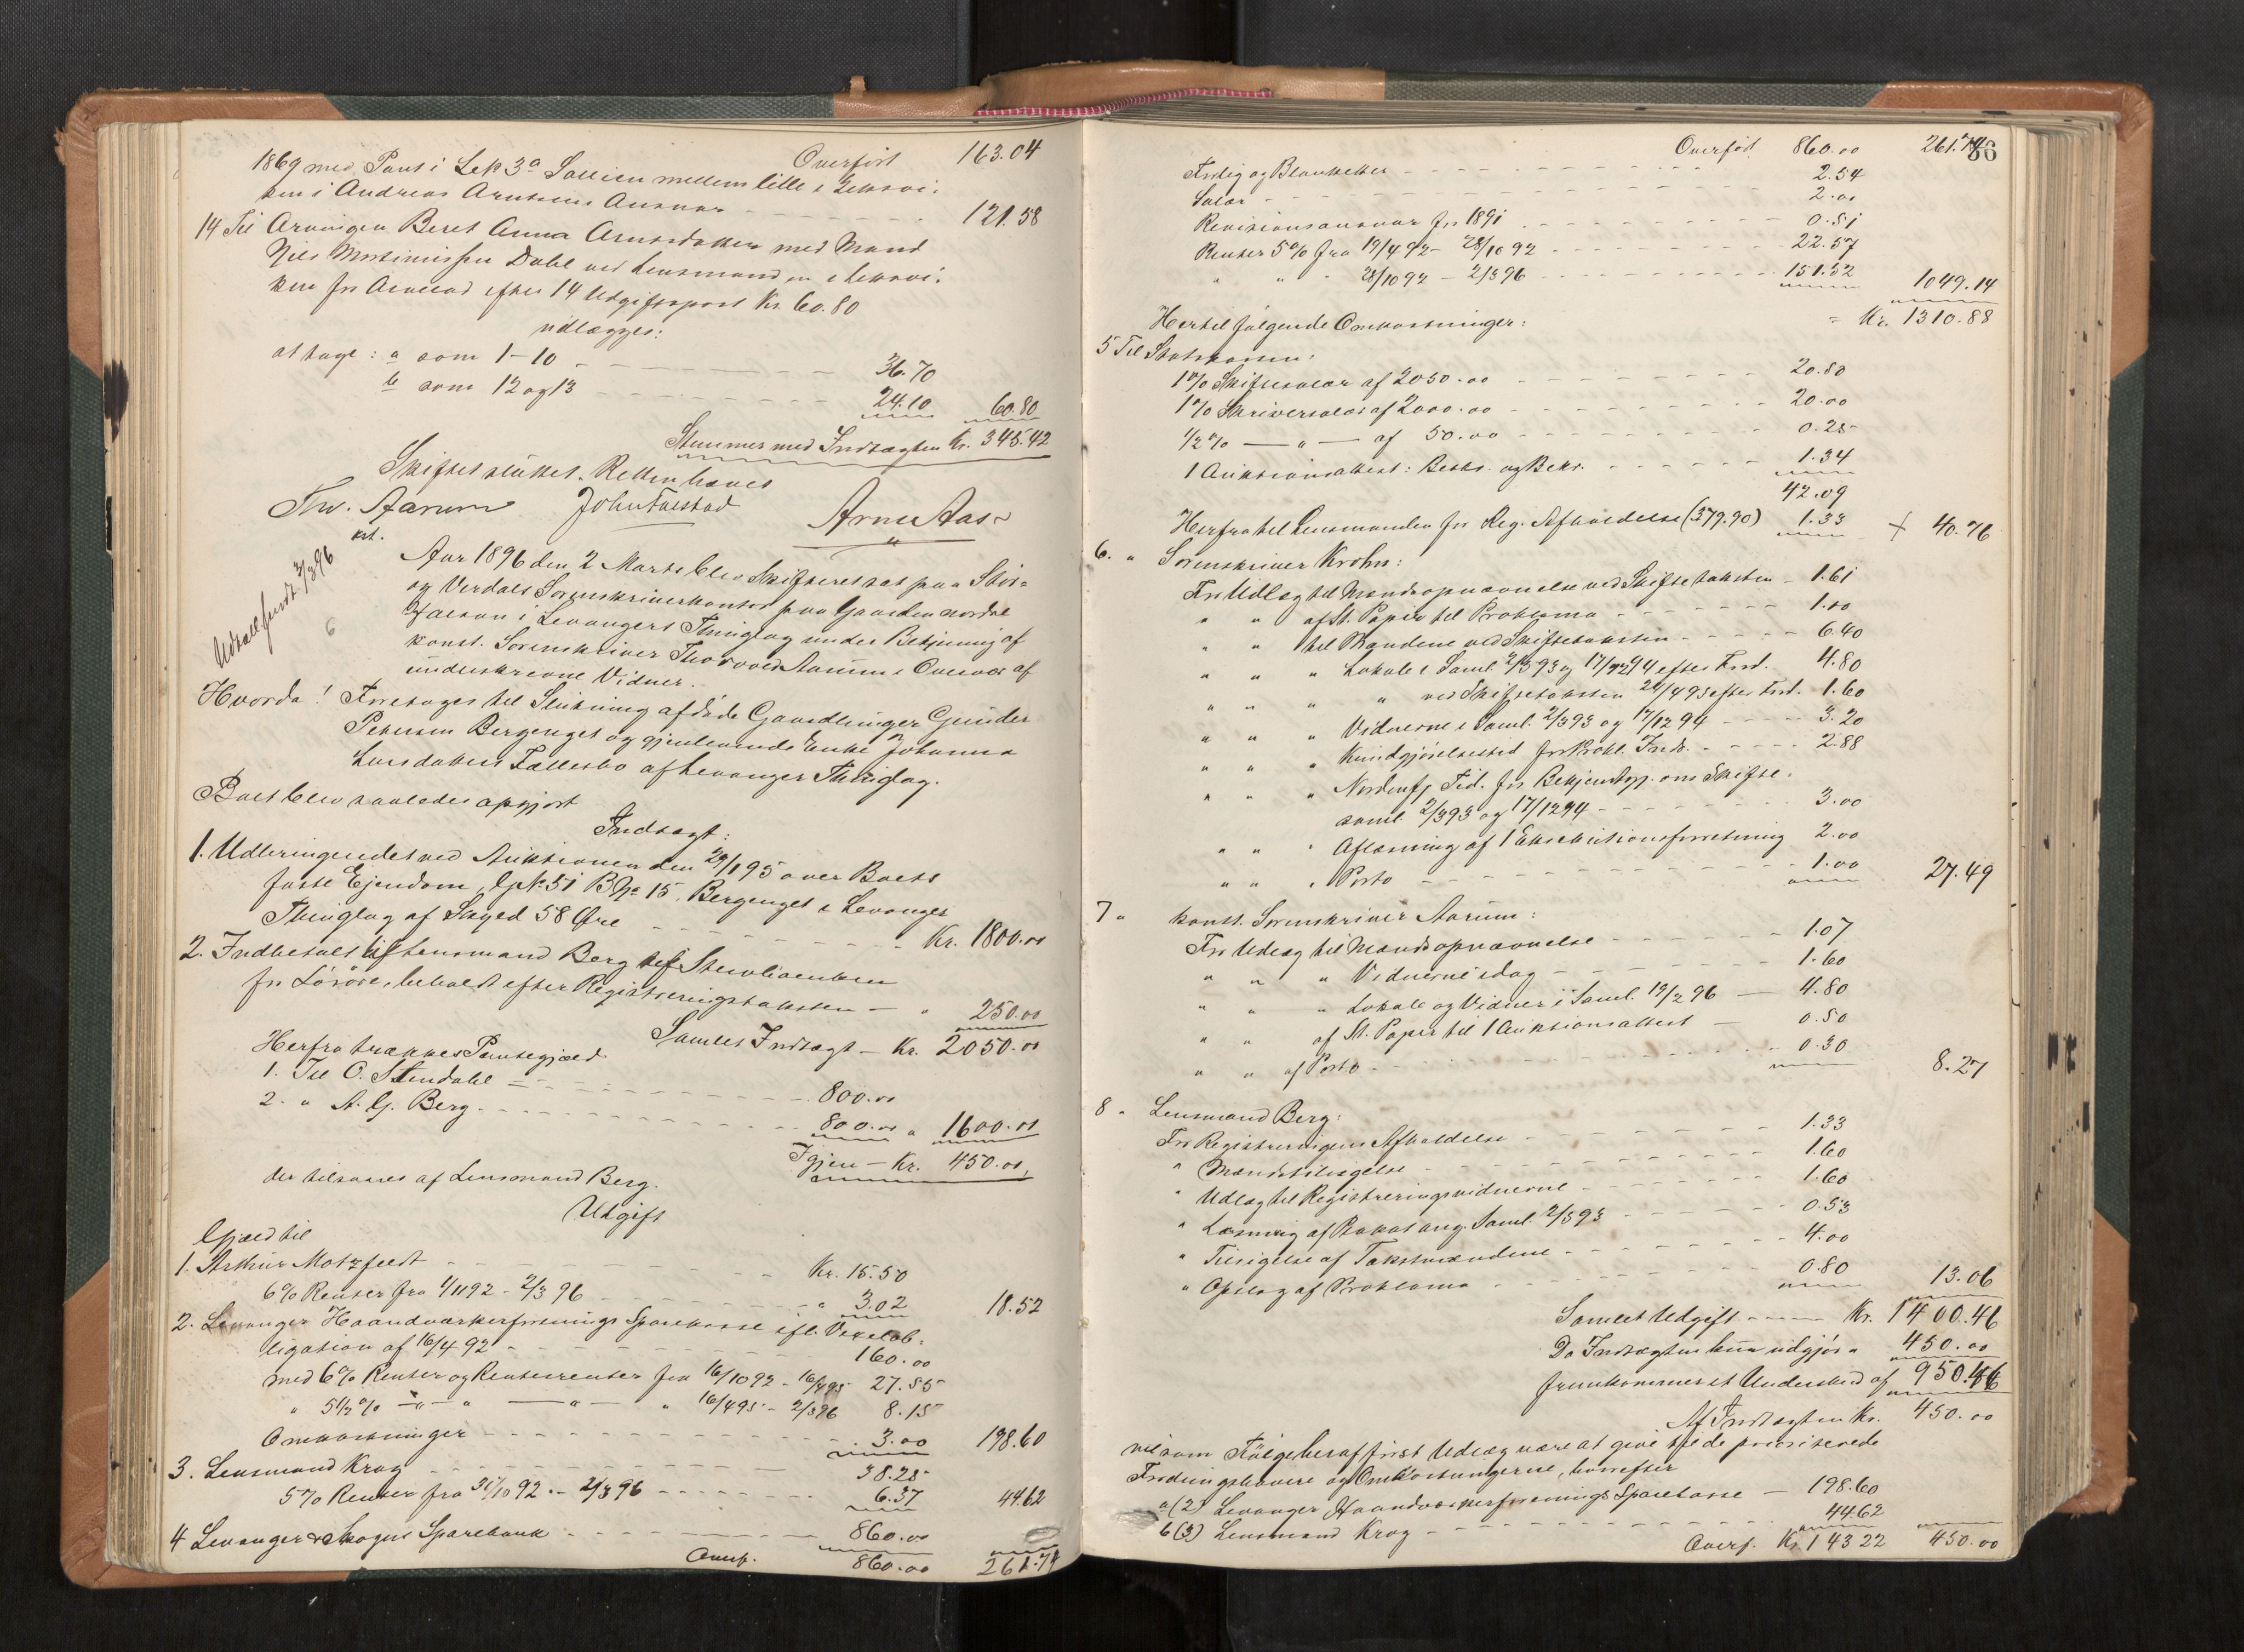 Overført 163.04
1869 med Pant i Lek 3a Sallien mellem lille i Leksvi-
ken i Andreas Arntsens Ansvar - - - 121.58
14 Til Arvingen Beret Anna Arntsdatter med Mand
Nils Mortinussen Dahl ved Lensmanden i Leksvi-
ken for Arvelod efter 14 Udgiftspost Kr. 60.80
udlægges:
at tage: a som 1-10 - - - 36.70
b som 12 og 13 - - - 24.10 60.80
Stemmer med Indtægten Kr. 345.42
Skiftet sluttet. Retten hævet
Thv. Aarum John Falstad Arne Aas
kst.
Udtall sendt 2/3 96
6
Aar 1896 den 2 Marts blev Skifteret sat paa Stør-
og Verdals Sorenskriverkontor paa Gaarden nordre
Halsan i Levangers Thinglag under Betjening af
konst. Sorenskriver Thorvald Aarum i Overvær af
underskrevne Vidner.
Hvorda! Foretages til Slutning afdøde Gaardbruger Gunder
Petersen Bergenget og gjenlevende Enke Johanna
Larsdatters Fællesbo af Levanger Thinglag.
Boet blev saaledes opgjort
Indtægt:
1. Udbringendet ved Auktionen den 29/1 95 over Boets
faste Ejendom, Gno 51 Bno 15, Bergenget i Levanger
Thinglag af Skyld 58 Øre - - - Kr. 1800.00
2. Indbetalt til Lensmand Berg af Stervboenken
for Løsøre, beholdt efter Registreringstaksten - " 250.00
Samlet Indtægt - Kr. 2050.00
Herfra trækkes Pantegjæld
1. Til O. Stendahl - - - 800.00
2. " A. G. Berg - - - 800.00 " 1600.00
Igjen - Kr. 450.00
der tilsvares af Lensmand Berg.
Udgift
Gjæld til
1. Arthur Motzfeldt - - - Kr. 15.50
6% Renter fra 1/11 92 - 2/3 96 - - - " 3.02 18.52
2. Levanger Haandværkerforenings Sparekasse ifl. Vexelob-
ligation af 16/4 92 - - - 160.00
med 6% Renter og Rentesrenter fra 16/10 92 - 16/4 95 27.55
" 5 1/2 % - " - " - " - " 16/4 95 - 2/3 96 8.15
Omkostninger - - - 3.00 198.60
3. Lensmand Krog - - - 38.25
5% Renter fra 31/10 92 - 2/3 96 - - - 6.37 44.62
4 Levanger & Skogns Sparebank - - - 860.00
Overf. 860.00 261.74
Overført 860.00 261.74
66
Forlig og Blanketter - - - 2.54
Salær - - - 2.00
Revisionsansvar for 1891 - - - 0.51
Renter 5% fra 19/4 92 - 28/10 92 - - - 22.57
" " " 28/10 92 - 2/3 96 - - - 151.52 1049.14
= Kr. 1310.88
Hertil følgende Omkostninger:
5 Til Statskassen:
1% Skiftesalær af 2050.00 - - - 20.50
1% Skriversalær af 2000.00 - - - 20.00
1/2 % — " — af 50.00 - - - 0.25
1 Auktionsattest: Beskr. og Bekr. - - - 1.34
42.09
Herfra til Lensmanden for Reg. Afholdelse (379.90) 1.33 + 40.76
6. " Sorenskriver Krohn:
For Udlæg til Mandsopnævnelse ved Skiftetaksten - 1.61
" " af St. Papir til Proklama - - - 1.00
" " til Mændene ved Skiftetaksten - - - 6.40
" " " Lokale i Saml. 2/3 93 og 17/12 94 efter Ford. 4.80
" " " " ved Skiftetaksten 24/4 93 efter Ford. 1.60
" " " Vidnerne i Saml. 2/3 93 og 17/12 94 - - - 3.20
" " " Kundgjørelsestid. for Prokl. Inds. - - - 2.88
" " " Nordenfj. Tid. for Bekjendtgj. om Skifte-
saml. 2/3 93 og 17/12 94 - - - 3.00
" " " Aflæsning af 1 Eksekutionsforretning 2.00
" " " Porto - - - 1.00 27.49
7 " konst. Sorenskriver Aarum:
For Udlæg til Mandsopnævnelse - - - 1.07
" " " Vidnerne idag - - - 1.60
" " " Lokale og Vidner i Saml. 19/2 96 - 4.80
" " af St. Papir til 1 Auktionsattest - 0.50
" " af Porto - - - 0.30 8.27
8 " Lensmand Berg:
For Registreringens Afholdelse - - - 1.33
" Mandstilsigelse - - - 1.60
" Udlæg til Registreringsvidnerne - - - 1.60
" Læsning af Plakat ang. Saml. 2/3 93 - - - 0.53
" Tilsigelse af Takstmændene - - - 4.00
" Opslag af Proklama - - - 0.80 13.06
Samlet Udgift - - - Kr. 1400.46
Da Indtægten kun udgjør " 450.00
fremkommer et Underskud af 950.46
Af Indtægten Kr. 450.00
vil som Følge heraf først Udlæg være at give til de prioriterede
Fordringshavere og Omkostningerne, hvorefter
a (2) Levanger Haandværkerforenings Sparekasse - 198.60
b (3) Lensmand Krog - - - 44.62
Overf. Kr. 143 22 450.00